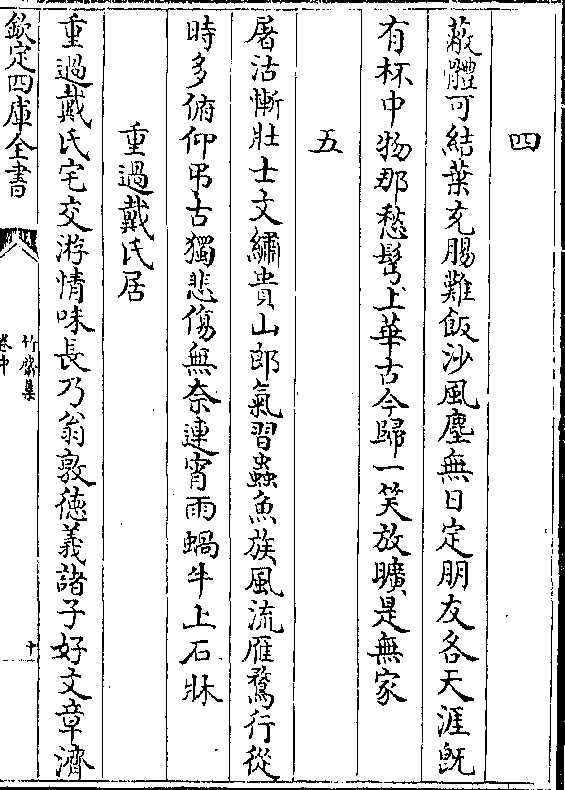 四
蔽體可結葉充腸難飯沙風塵無日定朋友各天涯既
有杯中物那愁髩上華古今歸一笑放曠是無家
五
屠沽慚壯士文繡貴山郎氣習蟲魚族風流雁鶩行從
時多俯仰弔古獨悲傷無奈連宵雨蝸牛上石牀
重過戴氏居
重過戴氏宅交游情味長乃翁敦徳義諸子好文章濟
欽定四庫全書
集
卷中
十